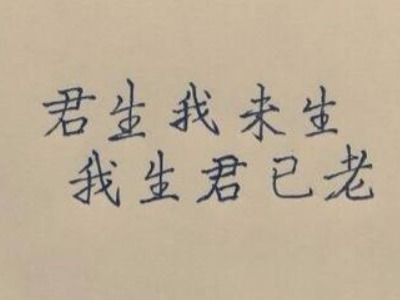 君生我未生
我生君已老